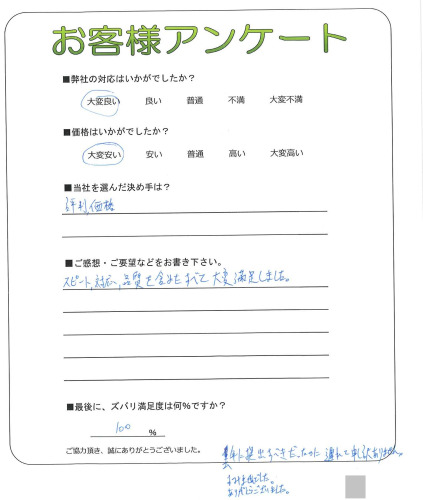 お客様アンケート
■弊社の対応はいかがでしたか？
大変良い 良い 普通 不満 大変不満
■価格はいかがでしたか？
大変安い 安い 普通 高い 大変高い
■当社を選んだ決め手は？
評判,価格
■ご感想・ご要望などをお書き下さい。
スピード,対応,品質を含めたすべて大変満足しました。
■最後に、ズバリ満足度は何%ですか？
100 %
ご協力頂き、誠にありがとうございました。
提出すべきだったのに遅れて申し訳ありません。
ありがとうございました。